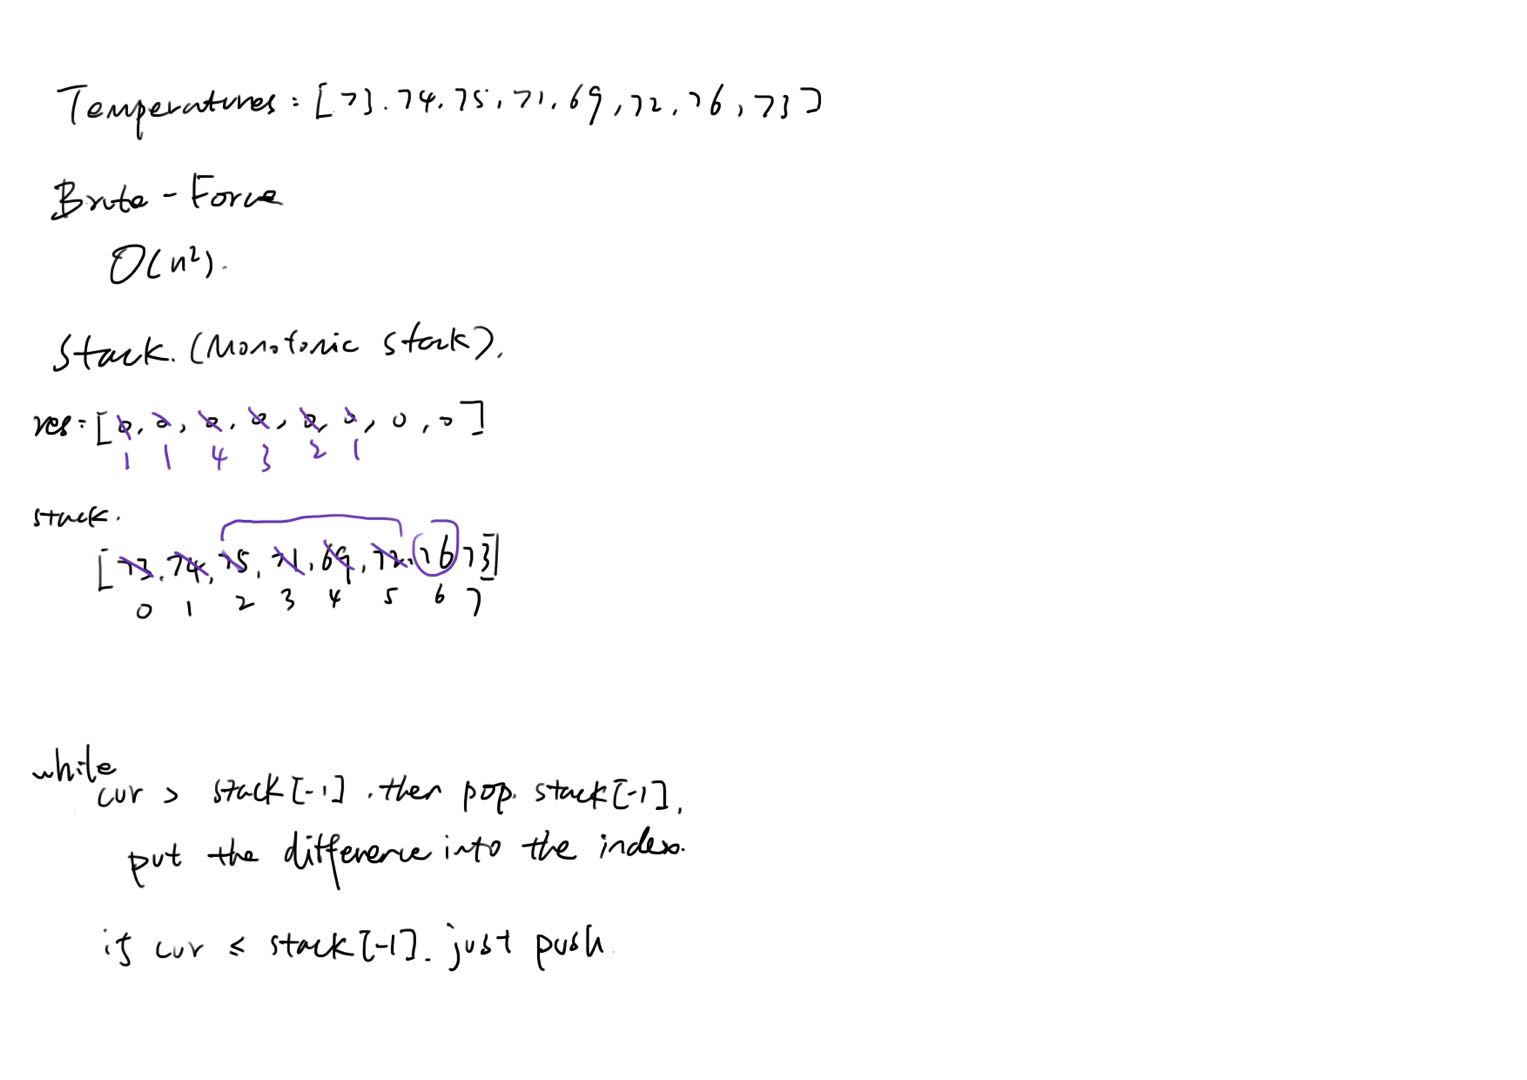 Temperatures: [73. 74. 75, 71. 69, 72. 76, 73]
Brute-Force
O(n²).
Stack. (Monotonic stack).
res=[0, 0, 0, 0, 0, 0, 0, 0]
1 1 4 3 2 1
stack.
[73. 74, 75, 71. 69, 72. 76 73]
0 1 2 3 4 5 6 7
while
cur > stack[-1]. then pop. stack[-1].
put the difference into the index.
if cur ≤ stack[-1]. just push.